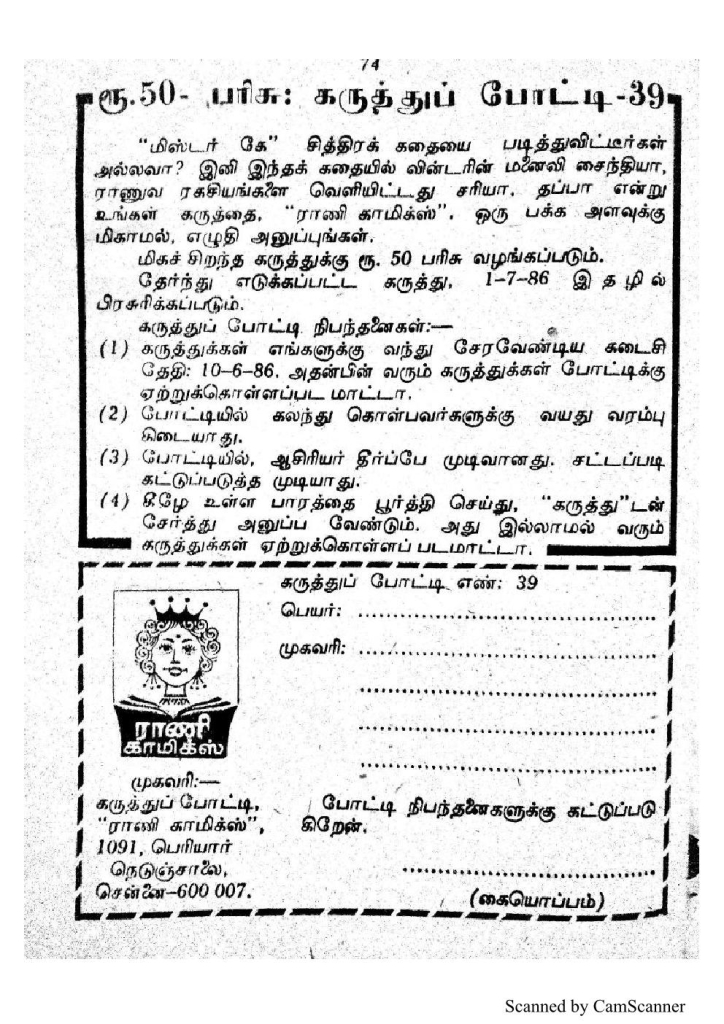 74
ரூ.50- பரிசு: கருத்துப் போட்டி-39
"மிஸ்டர் கே" சித்திரக் கதையை படித்துவிட்டீர்கள்
அல்லவா? இனி இந்தக் கதையில் வின்டரின் மனைவி சைந்தியா,
ராணுவ ரகசியங்களை வெளியிட்டது சரியா, தப்பா என்று
உங்கள் கருத்தை, "ராணி காமிக்ஸ்". ஒரு பக்க அளவுக்கு
மிகாமல், எழுதி அனுப்புங்கள்.
மிகச் சிறந்த கருத்துக்கு ரூ. 50 பரிசு வழங்கப்படும்.
தேர்ந்து எடுக்கப்பட்ட கருத்து, 1-7-86 இதழில்
பிரசுரிக்கப்படும்.
கருத்துப் போட்டி நிபந்தனைகள்:—
(1) கருத்துக்கள் எங்களுக்கு வந்து சேரவேண்டிய கடைசி
தேதி: 10-6-86. அதன்பின் வரும் கருத்துக்கள் போட்டிக்கு
ஏற்றுக்கொள்ளப்பட மாட்டா.
(2) போட்டியில் கலந்து கொள்பவர்களுக்கு வயது வரம்பு
கிடையாது.
(3) போட்டியில், ஆசிரியர் தீர்ப்பே முடிவானது. சட்டப்படி
கட்டுப்படுத்த முடியாது.
(4) கீழே உள்ள பாரத்தை பூர்த்தி செய்து, "கருத்து"டன்
சேர்த்து அனுப்ப வேண்டும். அது இல்லாமல் வரும்
கருத்துக்கள் ஏற்றுக்கொள்ளப் படமாட்டா.
கருத்துப் போட்டி எண்: 39
பெயர்: ........................................
முகவரி: ........................................
ராணி
காமிக்ஸ்
முகவரி:—
கருத்துப் போட்டி,
"ராணி காமிக்ஸ்",
1091, பெரியார்
நெடுஞ்சாலை,
சென்னை-600 007.
போட்டி நிபந்தனைகளுக்கு கட்டுப்படு
கிறேன்.
(கையொப்பம்)
Scanned by CamScanner